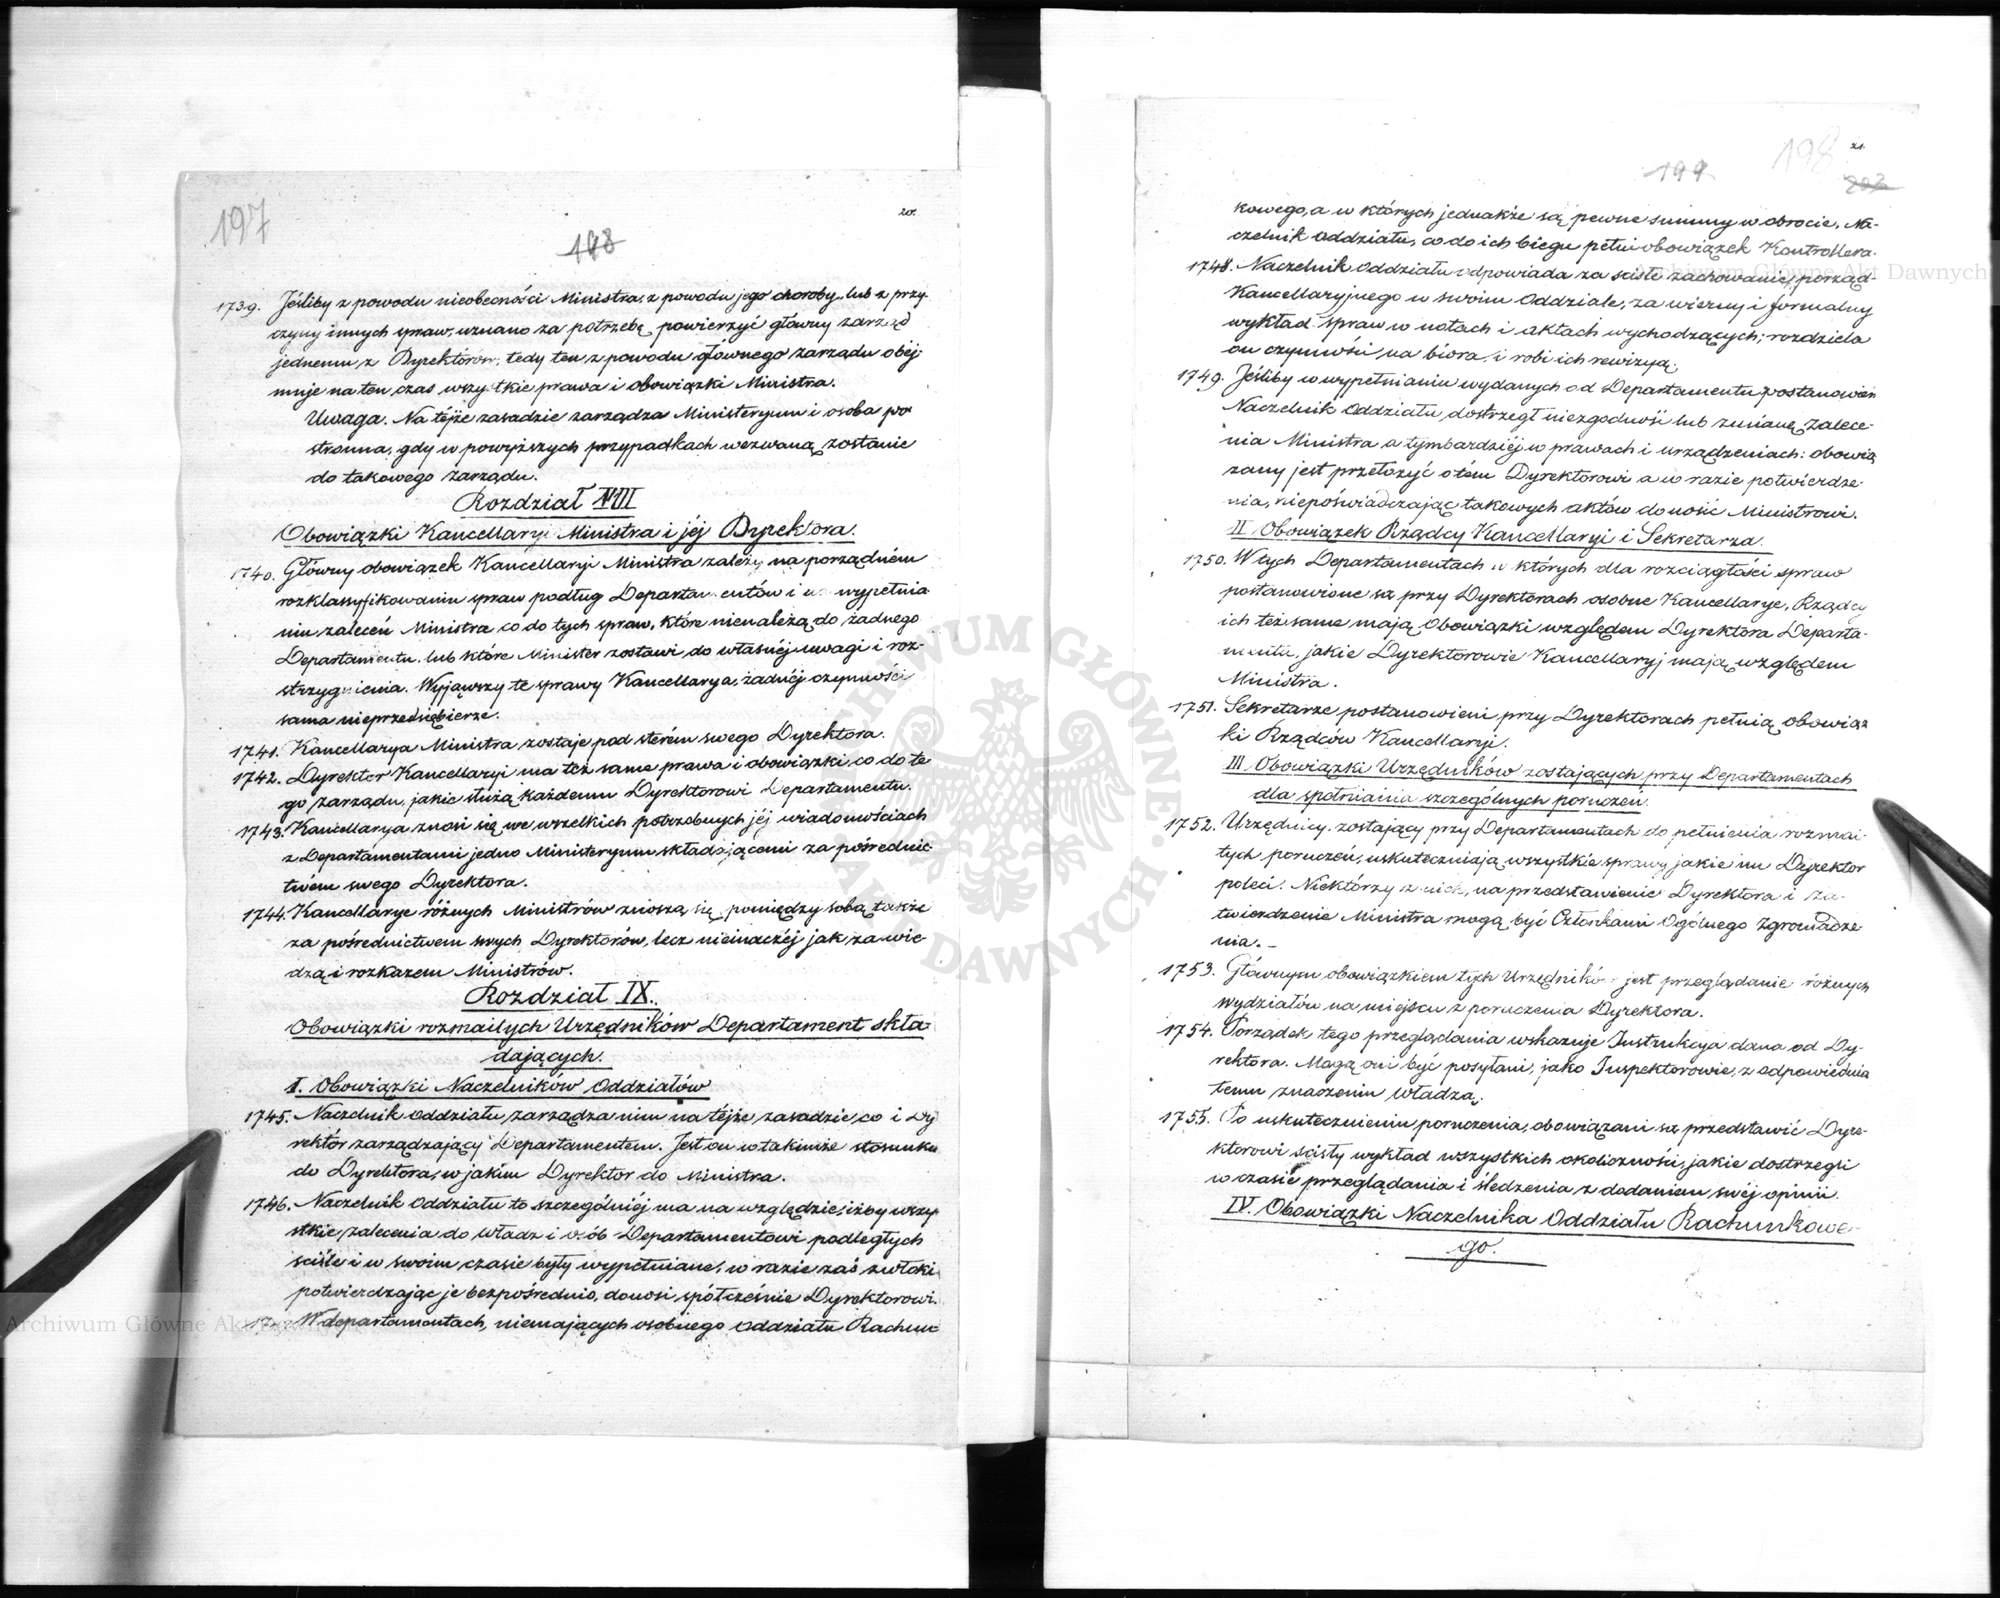 197
20.
198
1739. Jeśliby z powodu nieobecności Ministra, z powodu jego choroby lub z przy-
czyny innych spraw, uznano za potrzebę powierzyć główny zarząd
jednemu z Dyrektorów, tedy ten z powodu głównego zarządu obej-
muje na ten czas wszystkie prawa i obowiązki Ministra.
Uwaga. Na téjże zasadzie zarządza Ministeryum i osoba po-
stronna, gdy w powyższych przypadkach wezwaną zostanie
do takowego zarządu.
Rozdział VIII
Obowiązki Kancellaryi Ministra i jéj Dyrektora.
1740. Główny obowiązek Kancellaryi Ministra zależy na porządném
rozklassyfikowaniu spraw podług Departamentów i na wypełnia-
niu zaleceń Ministra co do tych spraw, które nienależą do żadnego
Departamentu, lub które Minister zostawi do własnéj uwagi i roz-
strzygnienia. Wyjąwszy te sprawy Kancellarya, żadnéj czynności
sama nieprzedsiębierze.
1741. Kancellarya Ministra zostaje pod sterém swego Dyrektora.
1742. Dyrektor Kancellaryi ma też same prawa i obowiązki, co do te-
go zarządu, jakie służą każdemu Dyrektorowi Departamentu.
1743. Kancellarya znosi się we wszelkich potrzebnych jéj wiadomościach
z Departamentami jedno Ministeryum składającemi za pośrednic-
twém swego Dyrektora.
1744. Kancellarye różnych Ministrów znoszą się pomiędzy sobą także
za pośrednictwem swych Dyrektorów, lecz nieinaczéj jak za wie-
dzą i rozkazem Ministrów.
Rozdział IX.
Obowiązki rozmaitych Urzędników Departament skła-
dających.
I. Obowiązki Naczelników Oddziałów
1745. Naczelnik Oddziału, zarządza nim na téjże zasadzie, co i Dy-
rektór zarządzający Departamentem. Jest on w takimże stosunku
do Dyrektora, w jakim Dyrektor do Ministra.
1746. Naczelnik Oddziału to szczególniéj ma na względzie, iżby wszy-
stkie zalecenia do Władz i osób Departamentowi podległych
ściśle i w swoim czasie były wypełniane, w razie zaś zwłoki
potwierdzając je bezpośrednio, donosi spółcześnie Dyrektorowi.
17 W departamentach, niemających osobnego Oddziału Rachun-
21.
198
199
202
kowego, a w których jednakże są pewne summy w obrocie, Na-
czelnik Oddziału, co do ich biegu pełni obowiązek Kontrollera.
1748. Naczelnik Oddziału odpowiada za ścisłe zachowanie porząd-
Kancellaryjnego w swoim Oddziale, za wierny i formalny
wykład spraw w notach i aktach wychodzących; rozdziela
on czynności na biora, i robi ich rewizyą.
1749. Jeśliby w wypełnianiu wydanych od Departamentu postanowień
Naczelnik Oddziału, dostrzegł niezgodność lub zmianę zalece-
nia Ministra a tymbardziéj w prawach i urządzeniach: obowią-
zany jest przełożyć o tém Dyrektorowi a w razie potwierdze-
nia, niepoświadczając takowych aktów donosić Ministrowi.
II Obowiązek Rządcy Kancellaryi i Sekretarza.
1750. W tych Departamentach w których dla rozciągłości spraw
postanowione są przy Dyrektorach osobne Kancellarye, Rządcy
ich też same mają obowiązki względem Dyrektora Departa-
mentu, jakie Dyrektorowie Kancellaryj mają względem
Ministra.
1751. Sekretarze postanowieni przy Dyrektorach pełnią obowiąz-
ki Rządców Kancellaryi.
III Obowiązki Urzędników zostających przy Departamentach
dla spełniania szczególnych poruczeń.
1752. Urzędnicy, zostający przy Departamentach do pełnienia rozmai-
tych poruczeń, uskuteczniają wszystkie sprawy jakie im Dyrektor
poleci. Niektórzy z nich, na przedstawienie Dyrektora i za-
twierdzenie Ministra mogą być Członkami Ogólnego Zgromadze-
nia.-
1753. Głównym obowiązkiem tych Urzędników jest przeglądanie różnych
wydziałów na miejscu z poruczenia Dyrektora.
1754. Porządek tego przeglądania wskazuje Instrukcya dana od Dy-
rektora. Mogą oni być posyłani, jako Inspektorowie, z odpowiednia
temu znaczeniu władzą.
1755. Po uskutecznieniu poruczenia, obowiązani są przedstawić Dyre-
ktorowi ścisły wykład wszystkich okoliczności, jakie dostrzegli
w czasie przeglądania i śledzenia z dodaniem swéj opinii.
IV. Obowiązki Naczelnika Oddziału Rachunkowe-
go.
ARCHIWUM GŁÓWNE AKT DAWNYCH
Archiwum Główne Akt Dawnych
Archiwum Główne Akt Dawnych